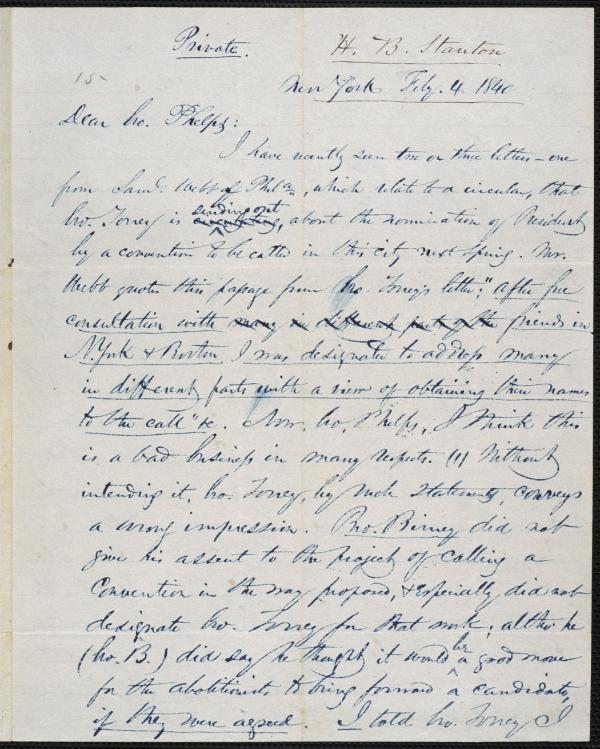 Private.
H. B. Stanton
15-
New York Feby. 4. 1840
Dear bro. Phelps:
I have recently seen two or three letters – one
from Saml. Webb of Phila., which relate to a circular, that
bro. Torrey is circulating, sending out about the nomination of President
by a convention to be called in this city next Spring. Mr.
Webb quotes this passage from bro. Torrey's letter; "After free
consultation with many in different parts of the friends in
N. York & Boston, I was designated to address many
in different parts with a view of obtaining their names
to the call" &c. Now, bro. Phelps, I think this
is a bad business in many respects. (1) Without
intending it, bro. Torrey, by such statements, conveys
a wrong impression. Bro. Birney did not
give his assent to the project of calling a
Convention in the way proposed, & especially did not
designate bro. Torrey for that work; altho' he
(bro. B.) did say he thought it would be a good move
for the abolitionists to bring forward a candidate,
if they were agreed. I told bro. Torrey I